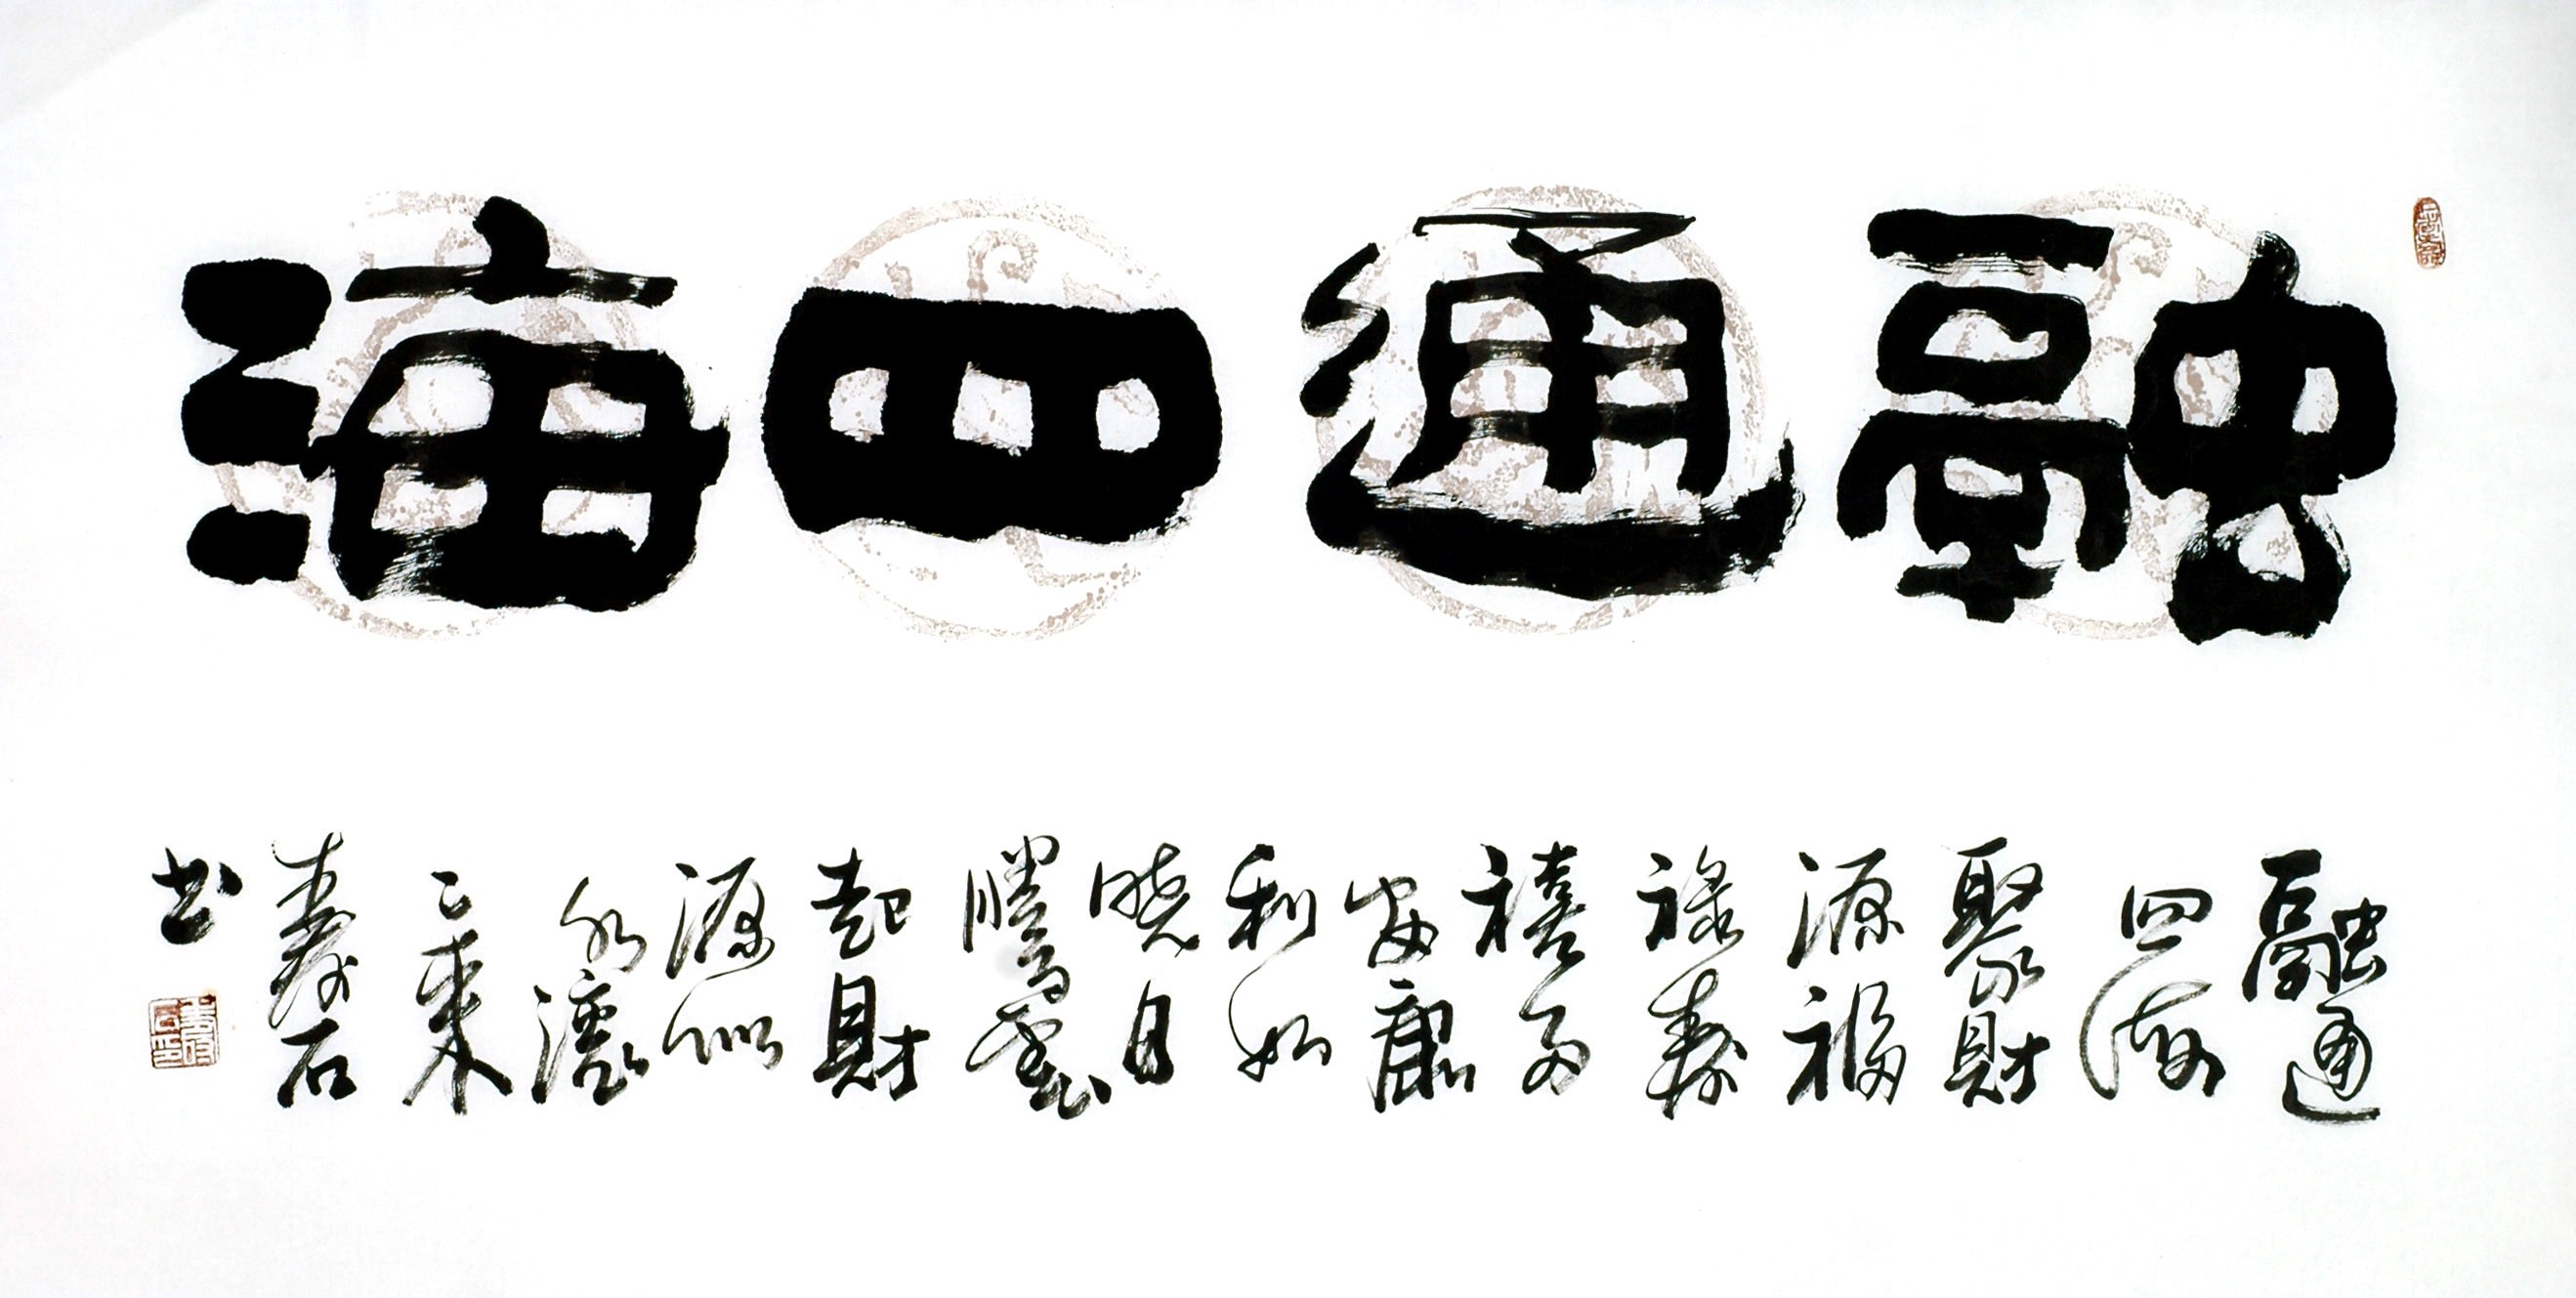 融通四海
融通
四海
聚財
源福
祿壽
禧多
安康
利如
曉日
騰雲
起財
源似
水滾
〻來
壽石
书